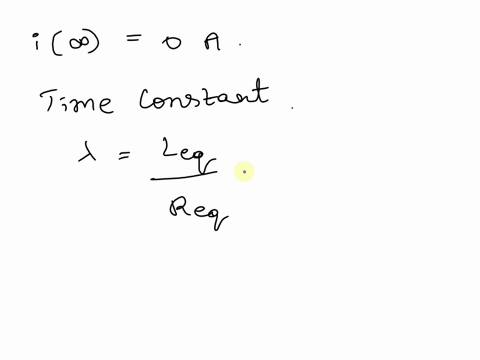 i(∞) = 0 A.
Time Constant.
λ = Leq / Req